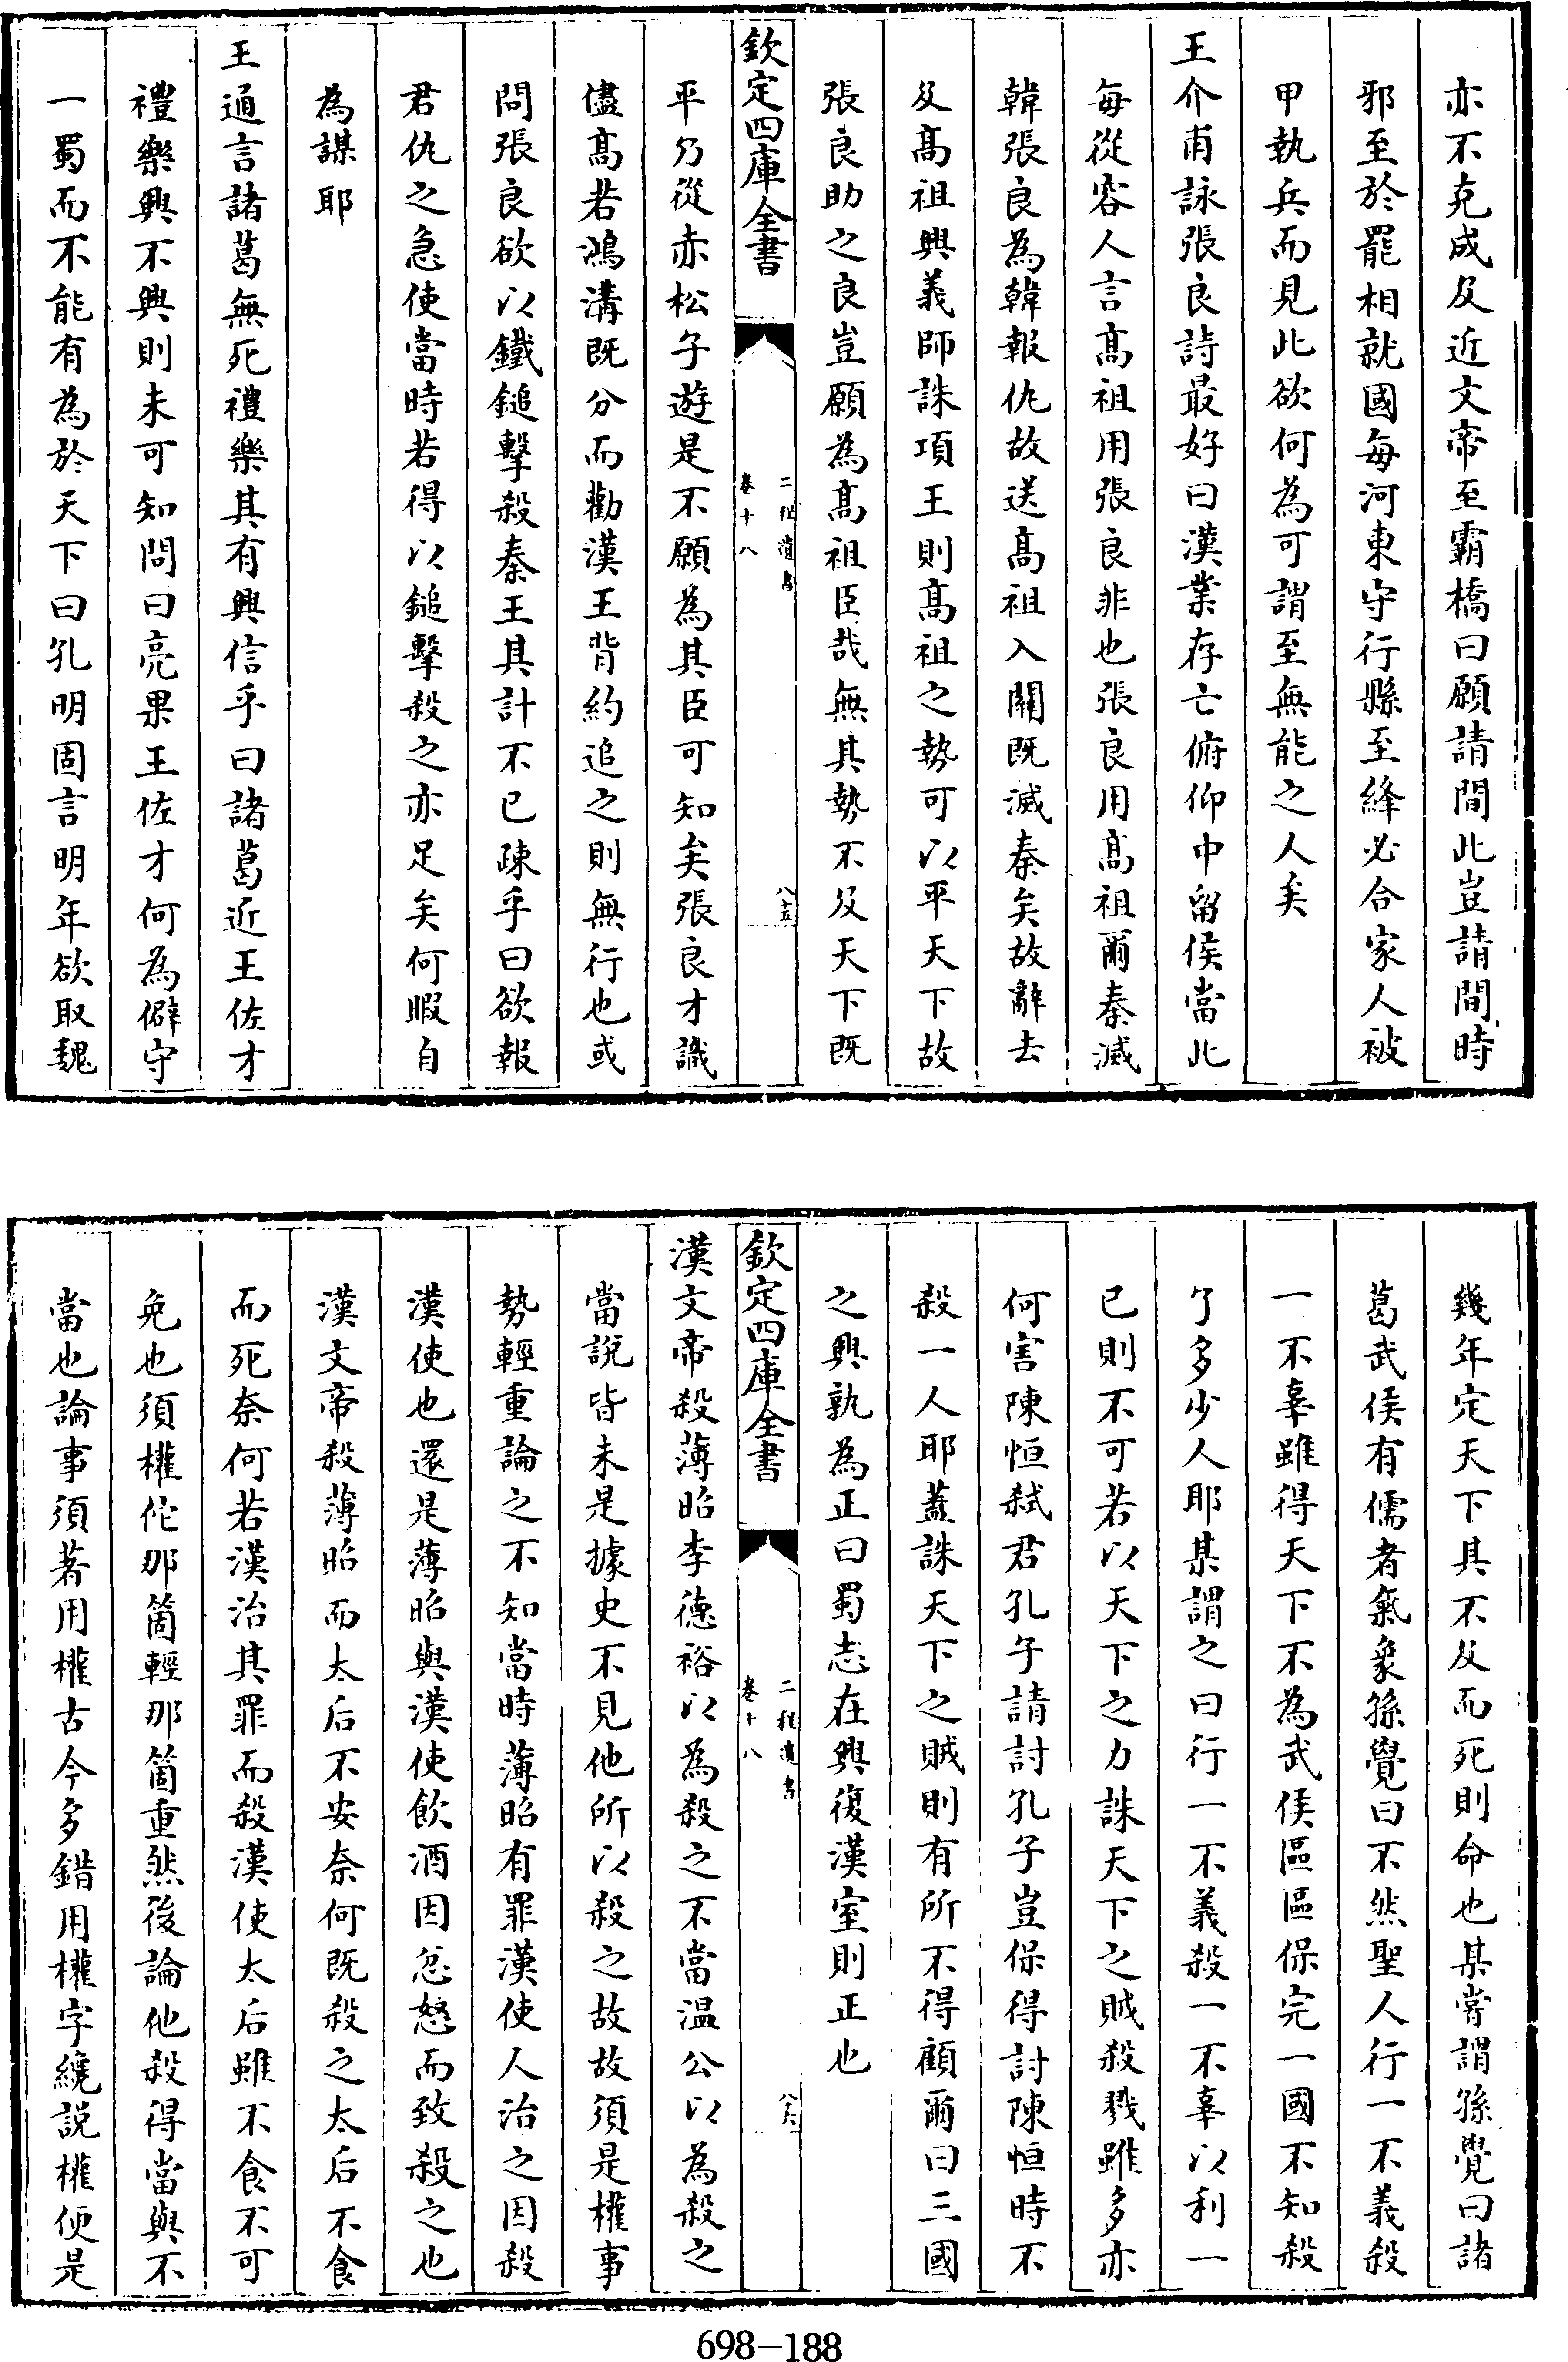 亦不克成及近文帝至霸橋曰願請間此豈請間時
邪至於罷相就國每河東守行縣至絳必合家人被
甲執兵而見此欲何為可謂至無能之人矣
王介甫詠張良詩最好曰漢業存亡俯仰中留侯當此
每從容人言髙祖用張良非也張良用髙祖爾秦滅
韓張良為韓報仇故送髙祖入關既滅秦矣故辭去
及髙祖興義師誅項王則髙祖之勢可以平天下故
張良助之良豈願為髙祖臣哉無其勢不及天下既
欽定四庫全書
二程遺書
卷十八
八十五
平乃從赤松子遊是不願為其臣可知矣張良才識
儘髙若鴻溝既分而勸漢王背約追之則無行也或
問張良欲以鐵鎚擊殺秦王其計不已疎乎曰欲報
君仇之急使當時若得以鎚擊殺之亦足矣何暇自
為謀耶
王通言諸葛無死禮樂其有興信乎曰諸葛近王佐才
禮樂興不興則未可知問曰亮果王佐才何為僻守
一蜀而不能有為於天下曰孔明固言明年欲取魏
幾年定天下其不及而死則命也某嘗謂孫覺曰諸
葛武侯有儒者氣象孫覺曰不然聖人行一不義殺
一不辜雖得天下不為武侯區區保完一國不知殺
了多少人耶某謂之曰行一不義殺一不辜以利一
已則不可若以天下之力誅天下之賊殺戮雖多亦
何害陳恒弑君孔子請討孔子豈保得討陳恒時不
殺一人耶蓋誅天下之賊則有所不得顧爾曰三國
之興孰為正曰蜀志在興復漢室則正也
欽定四庫全書
二程遺書
卷十八
八十六
漢文帝殺薄昭李德裕以為殺之不當温公以為殺之
當說皆未是據史不見他所以殺之故故須是權事
勢輕重論之不知當時薄昭有罪漢使人治之因殺
漢使也還是薄昭與漢使飲酒因忿怒而致殺之也
漢文帝殺薄昭而太后不安奈何既殺之太后不食
而死奈何若漢治其罪而殺漢使太后雖不食不可
免也須權佗那箇輕那箇重然後論他殺得當與不
當也論事須著用權古今多錯用權字纔說權便是
698-188